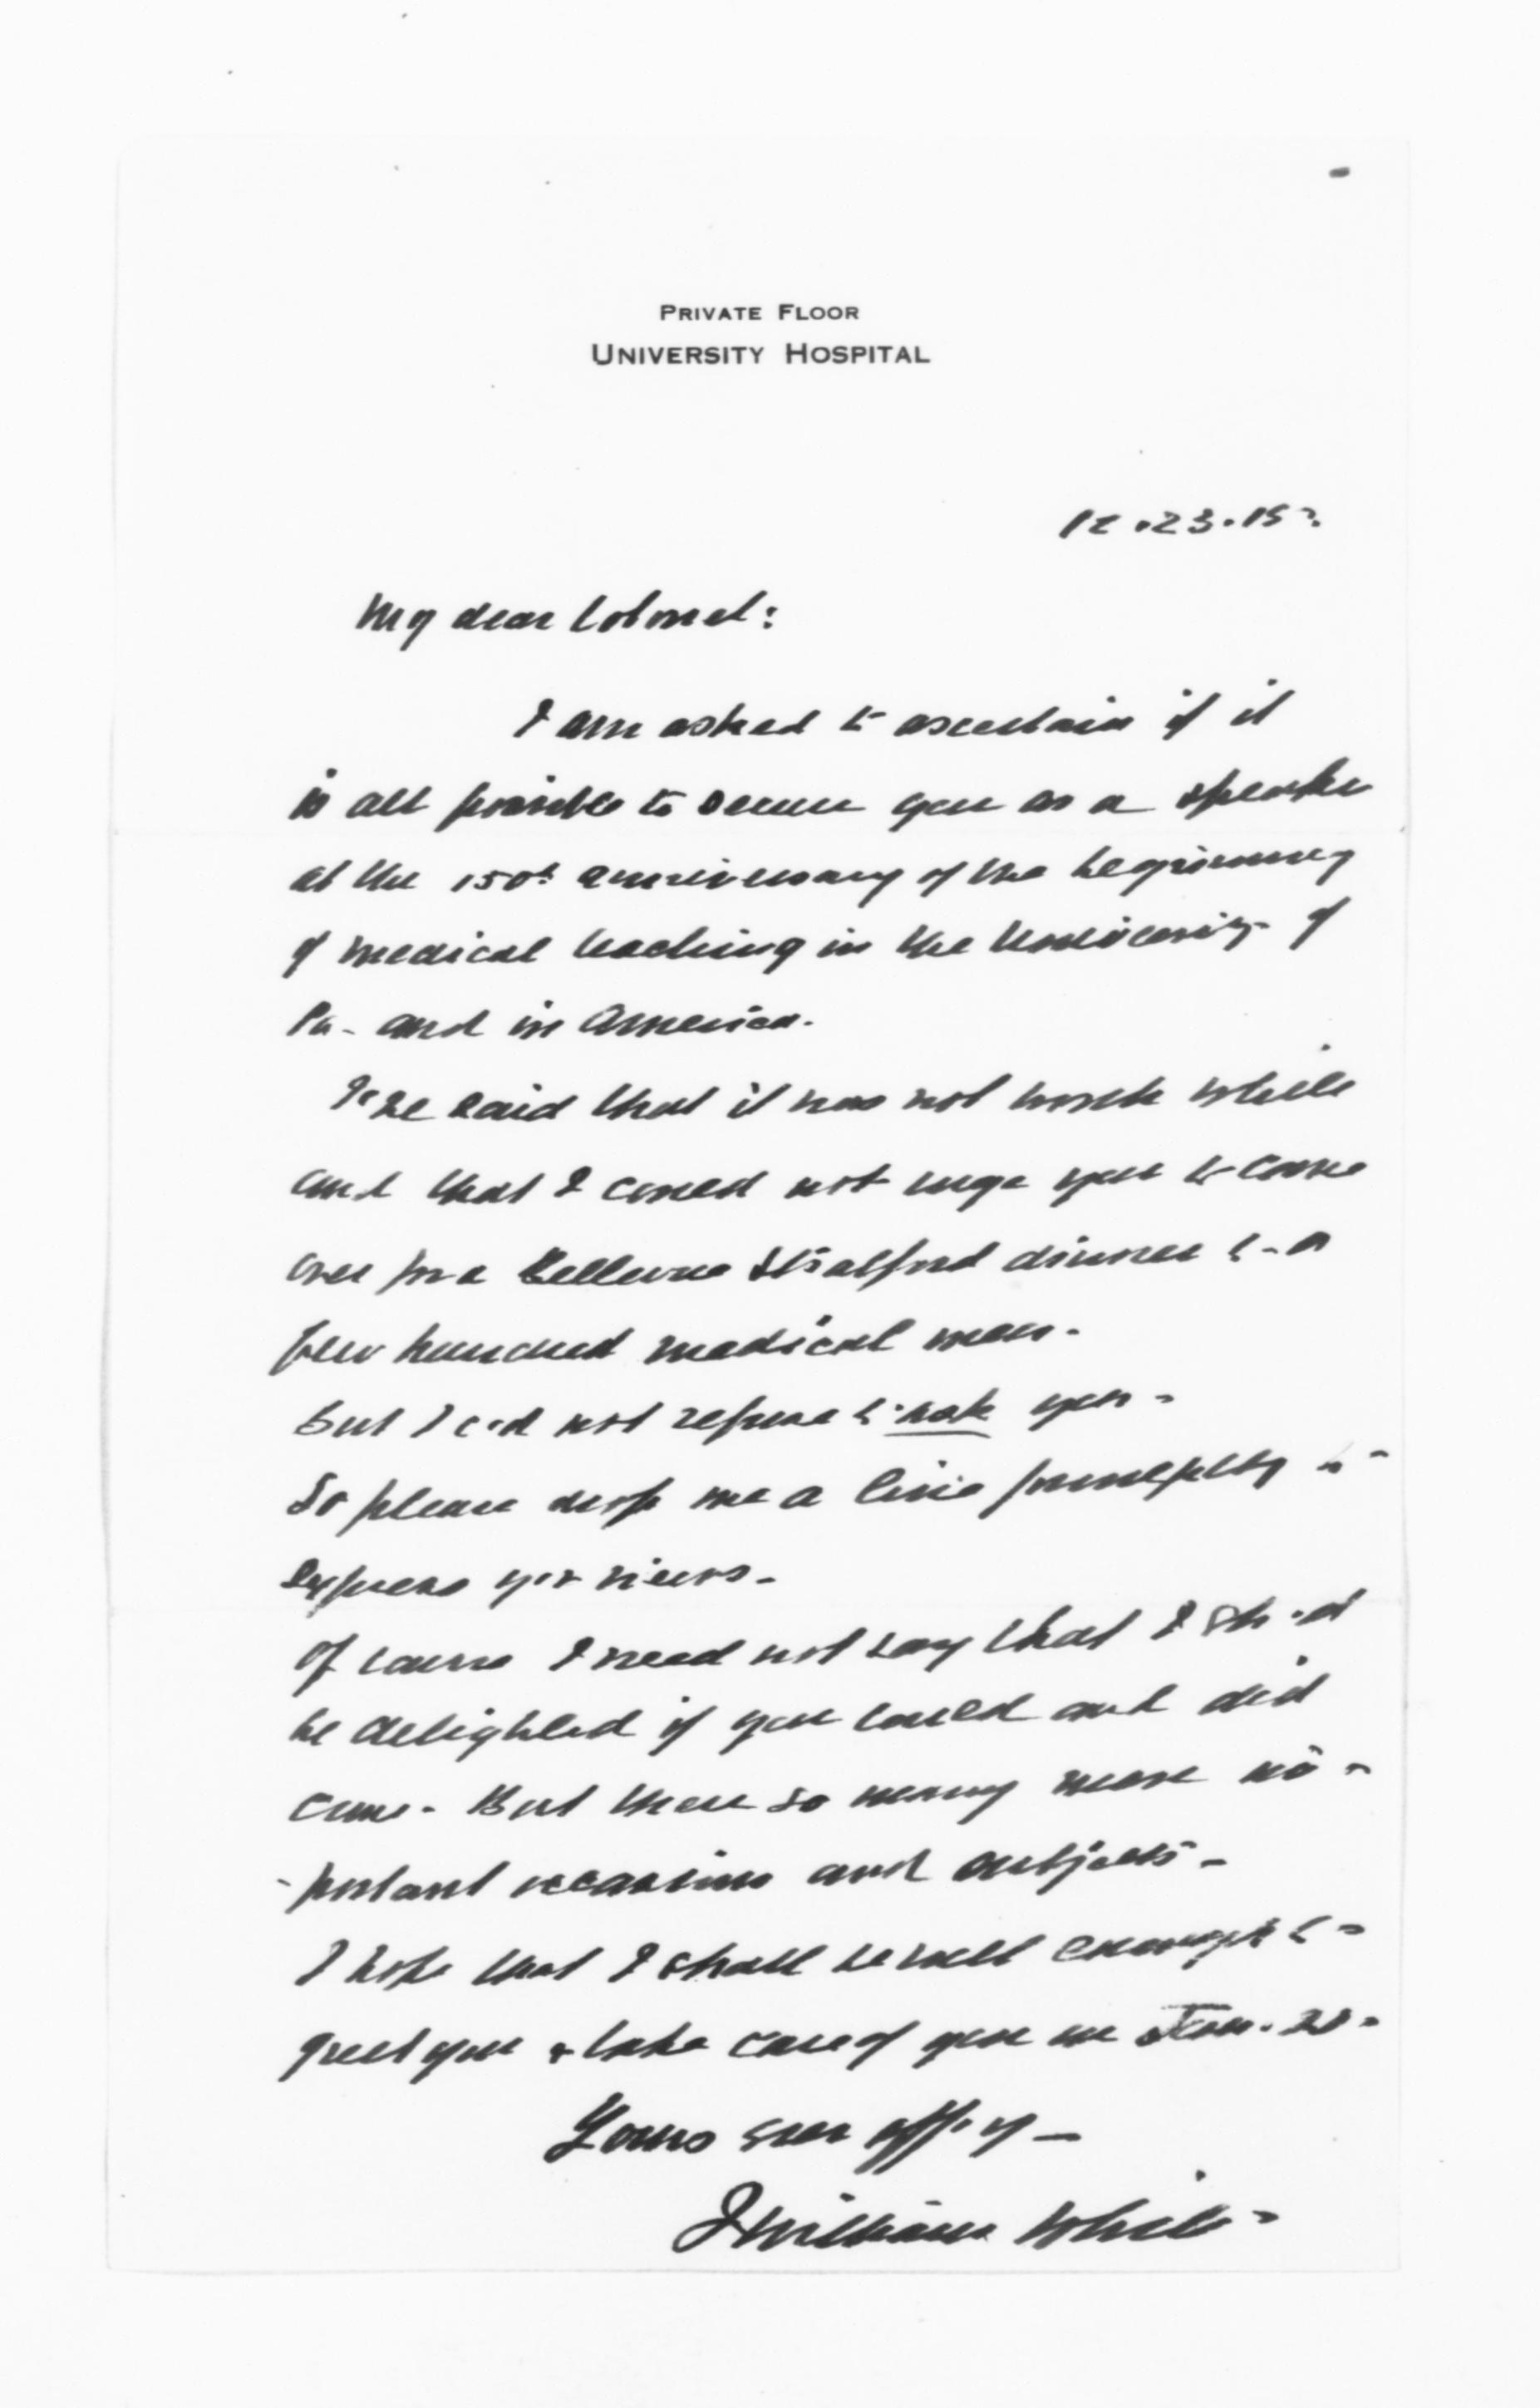 PRIVATE FLOOR
UNIVERSITY HOSPITAL
12.23.15.
My dear Colonel:
I am asked to ascertain if it
is all possible to secure you as a speaker
at the 150th anniversary of the beginning
of medical teaching in the University of
Pa. and in America.
I said that it was not worth while
and that I could not urge you to come
over for a Bellevue Stratford dinner to a
few hundred medical men.
But I c'd not refuse to ask you.
So please drop me a line promptly to
express yo'r views.
Of course I need not say that I sh'd
be delighted if you could and did
come. But there so many more im-
-portant occasions and subjects.
I hope that I shall be well enough to
greet you & take care of you on Jan. 20.
Yours ever aff'y -
J William White